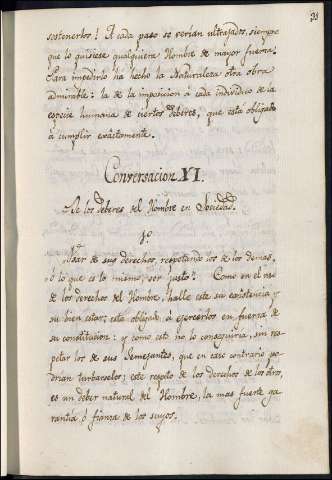 sostenerlos! A cada paso se verían ultrajados, siempre
que lo quisiese qualquiera Hombre de mayor fuerza!
Para impedirlo ha hecho la Naturaleza otra obra
admirable: la de la imposicion á cada individuo de la
especie humana de ciertos deberes, que está obligado
á cumplir exactamente.
Conversacion VI.
De los deberes del Hombre en Sociedad.
1º
Usar de sus derechos, respetando los de los demas,
ó lo que es lo mismo, ser justo. Como en el uso
de los derechos del Hombre, halle este su existencia y
su bien estar; está obligado á exercerlos en fuerza de
su constitucion: y como esto no lo conseguiria, sin res-
petar los de sus Semejantes, que en caso contrario po-
drian turbarselos; este respeto de los derechos de los otros,
es un deber natural del Hombre, la mas fuerte ga-
rantía ó fianza de los suyos.